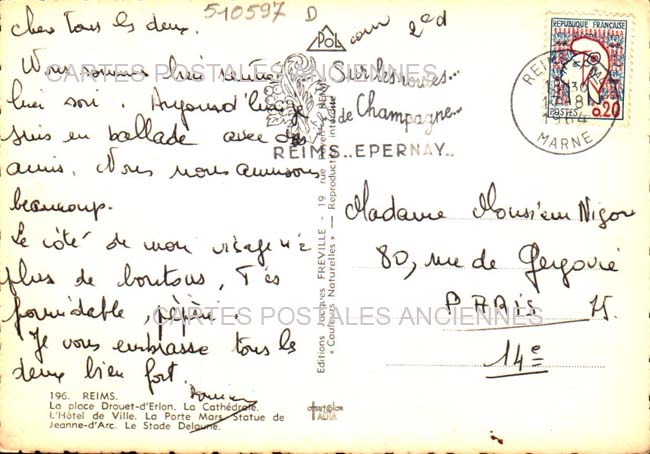 510597 D
chers tous les deux.
Nous sommes bien rentrés
hier soir. Aujourd'hui je
suis en ballade avec des
amis. Nous nous amusons
beaucoup.
Le côté de mon visage n'a
plus de boutons. T'es
formidable, pépère.
Je vous embrasse tous les
deux bien fort.
196. REIMS.
La place Drouet-d'Erlon. La Cathédrale.
L'Hôtel de Ville. La Porte Mars. Statue de
Jeanne-d'Arc. Le Stade Delaune.
Editions Jacques FREVILLE - 19 rue
« Couleurs Naturelles » — Reproduction interdite
POL
Sur les routes...
de Champagne...
REIMS..EPERNAY..
REPUBLIQUE FRANÇAISE
POSTES 0,20
REIMS
1964
MARNE
Madame Monsieur Nigon
80, rue de Gergovie
PARIS 75.
14e
CARTES POSTALES ANCIENNES
CARTES POSTALES ANCIENNES